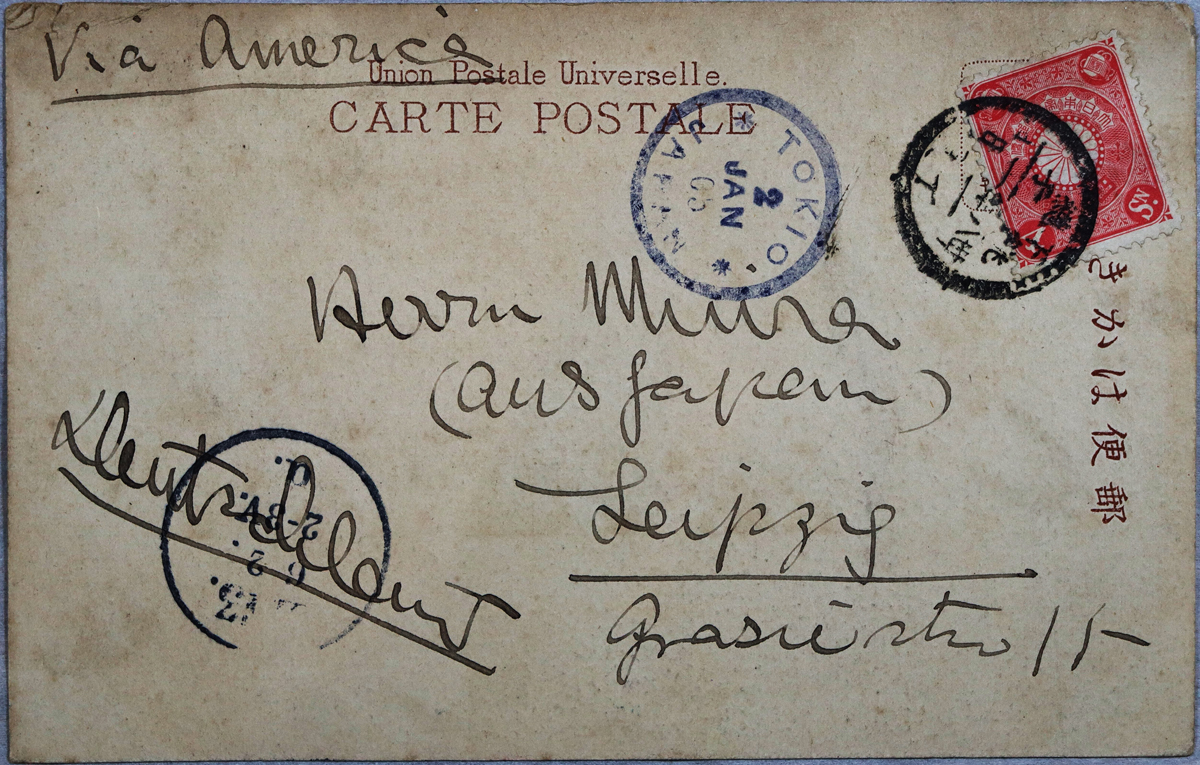 Via America
Union Postale Universelle.
CARTE POSTALE
* TOKIO. *
JAPAN
2
JAN
Herrn Miura
(aus Japan)
Leipzig
Grassistr 15
Deutschland
きかは便郵